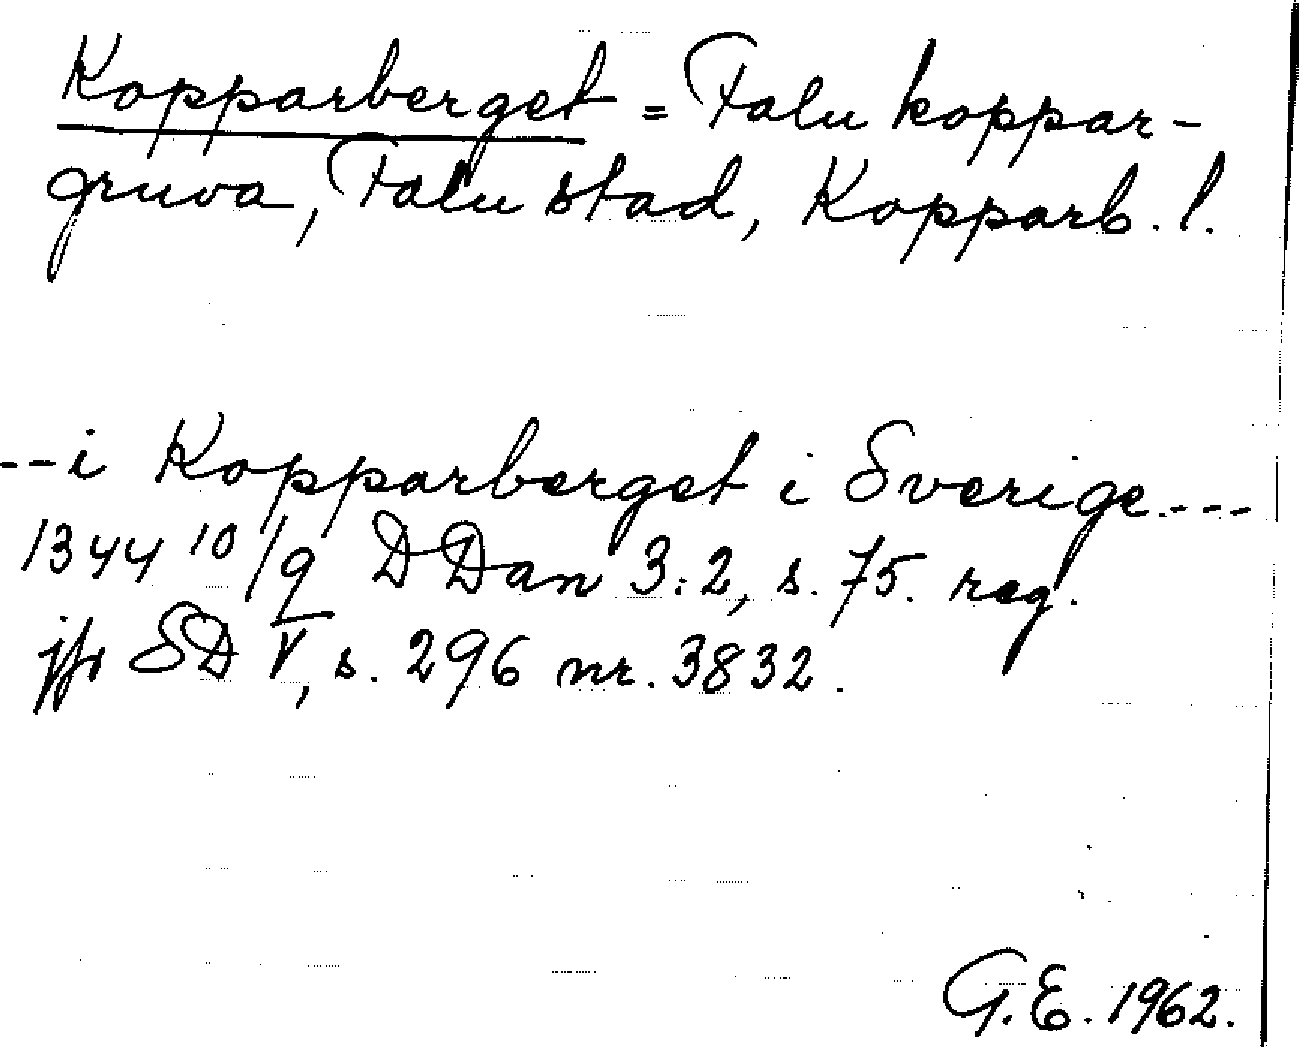 Kopparberget = Falu koppar-
gruva, Falu stad, Kopparb. l.
--i Kopparberget i Sverige.---
1344 10/9 DDan 3:2, s. 75. reg.
jfr SD V, s. 296 nr. 3832.
G.E. 1962.